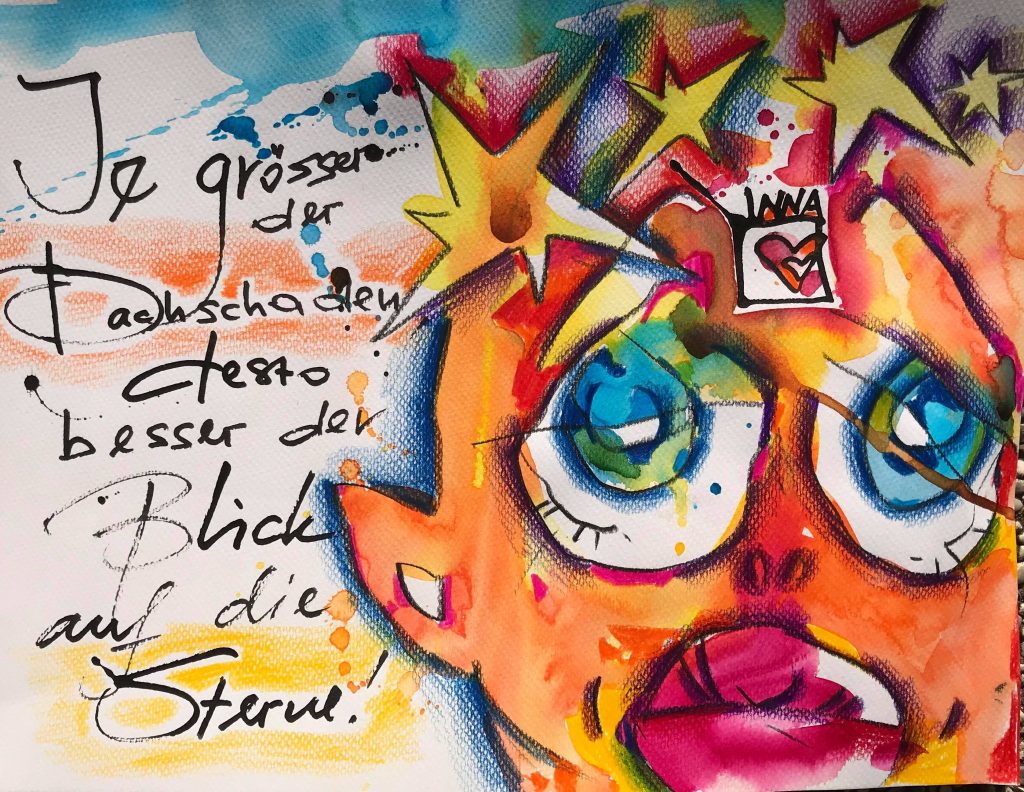 Je grösser
der
Dachschaden
desto
besser der
Blick
auf die
Sterne!
INNA